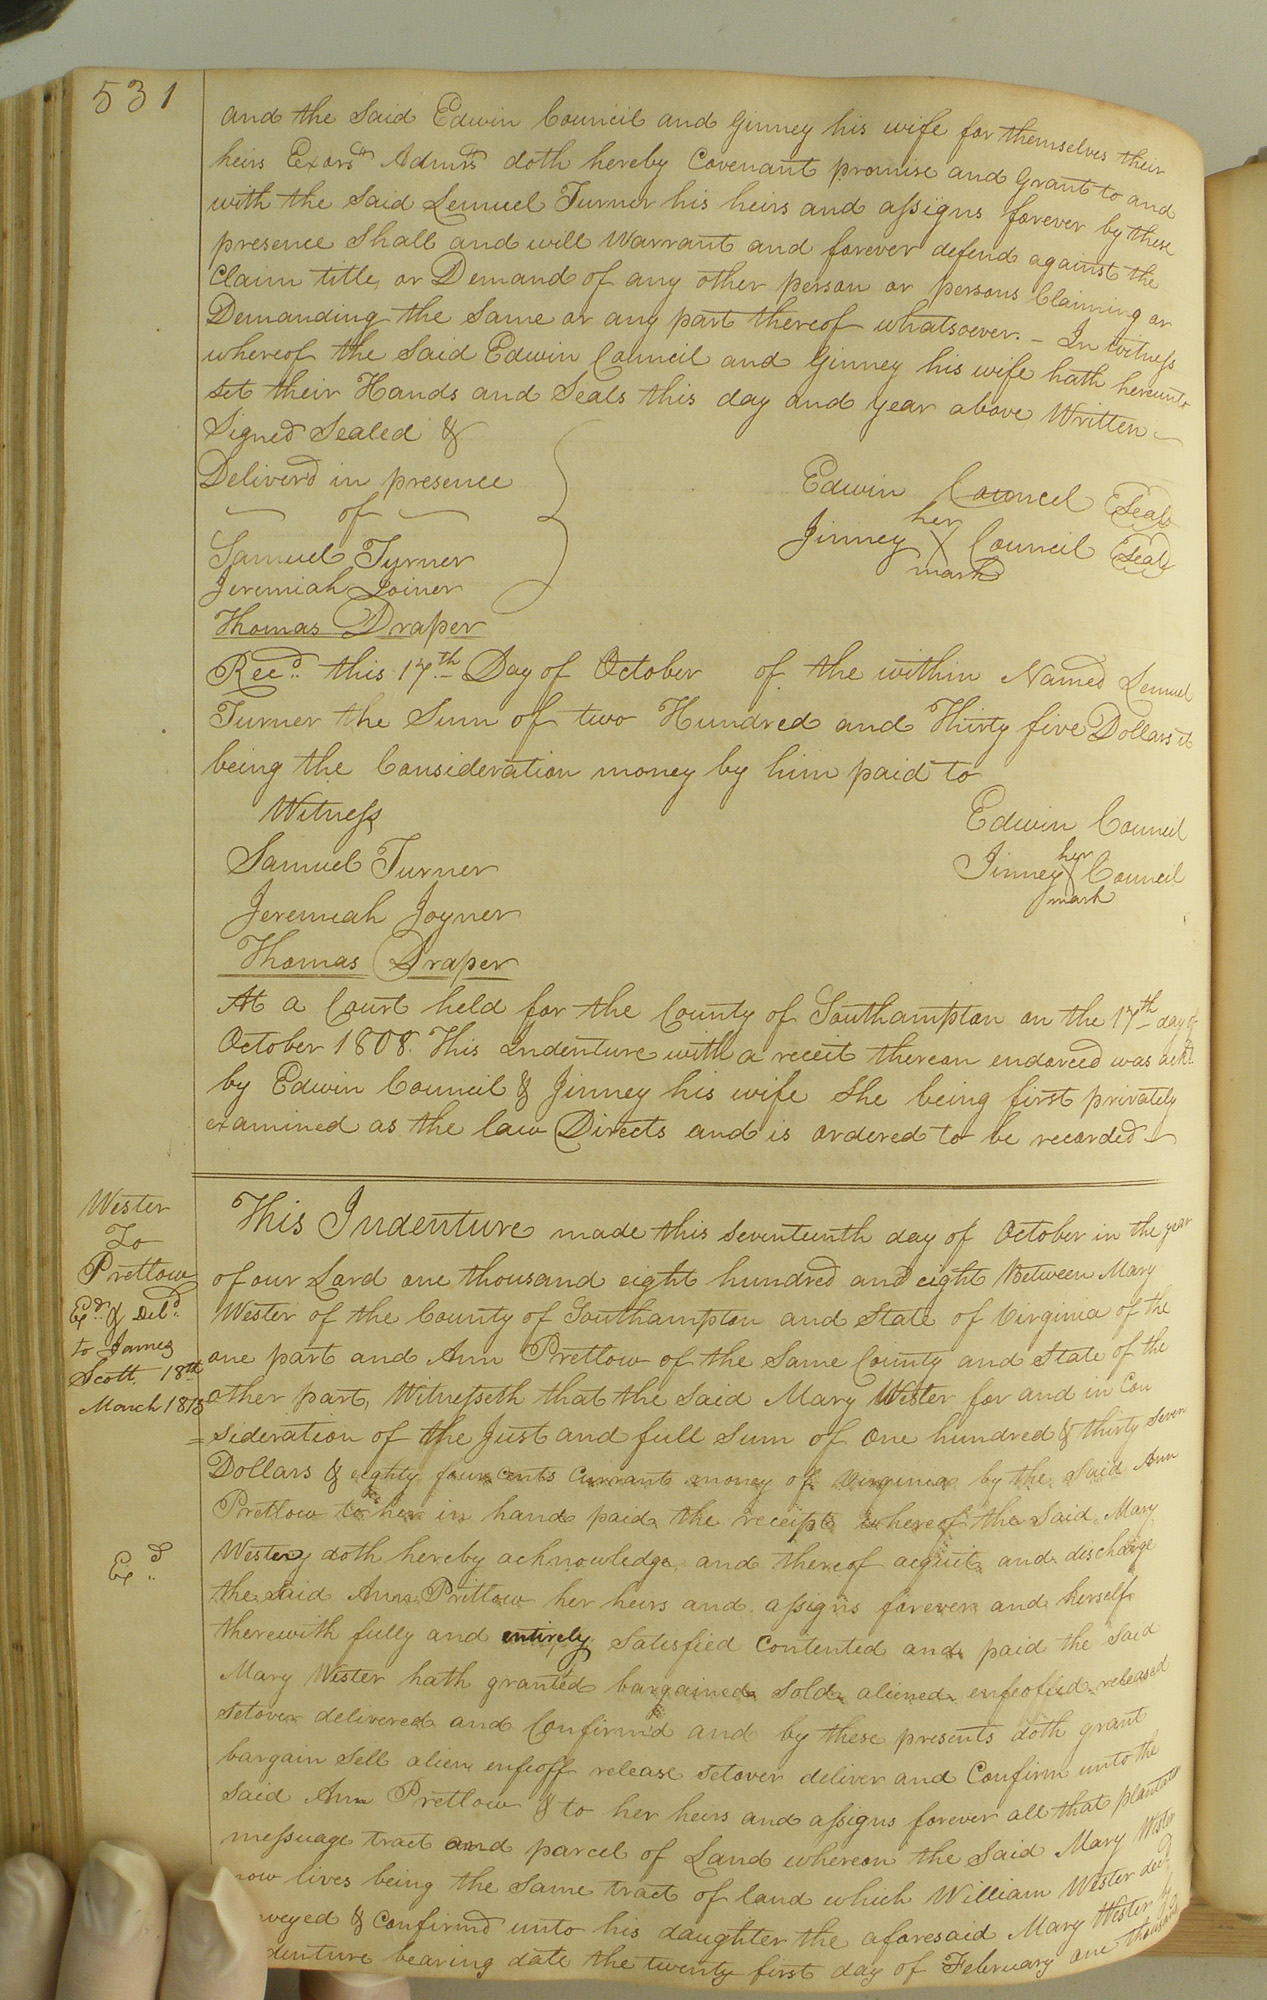 531
and the Said Edwin Council and Ginney his wife for themselves their
heirs Exors Admrs doth hereby Covenant promise and Grant to and
with the Said Lemuel Turner his heirs and assigns forever by these
presence Shall and will Warrant and forever defend against the
Claim title or Demand of any other person or persons Claiming or
Demanding the Same or any part thereof whatsoever. - In witness
whereof the Said Edwin Council and Ginney his wife hath hereunto
set their Hands and Seals this day and year above Written
Signed Sealed &
Deliverd in presence
of
Samuel Turner
Jeremiah Joiner
Thomas Draper
Edwin Councel Seal
her
Jinney X Council Seal
mark
Recd. this 17th Day of October of the within Named Lemuel
Turner the Sum of two Hundred and Thirty five Dollars it
being the Consideration money by him paid to
Witness
Samuel Turner
Jeremiah Joyner
Thomas Draper
Edwin Council
her
Jinney X Council
mark
At a Court held for the County of Southampton on the 17th day of
October 1808. This Indenture with a receit thereon endorced was ackd.
by Edwin Council & Jinney his wife She being first privately
examined as the law Directs and is ordered to be recorded
Wester
To
Pretlow
Exd. & Deld.
to James
Scott 18th
March 1818
Exd.
This Indenture made this seventeenth day of October in the year
of our Lord one thousand eight hundred and eight Between Mary
Wester of the County of Southampton and State of Virginia of the
one part and Ann Pretlow of the Same County and State of the
other part, Witnesseth that the said Mary Wester for and in Con
sideration of the Just and full Sum of one hundred & thirty seven
Dollars & eighty four cents Currant money of Virginia by the said Ann
Pretlow to her in hand paid the receipt whereof the Said Mary
Wester doth hereby acknowledge, and thereof acquit and discharge
the said Ann Prittow her heirs and assigns forever and herself
therewith fully and entirely Satisfied Contented and paid the said
Mary Wester hath granted bargained sold aliened enfeoffed released
setover delivered and Confirm'd and by these presents doth grant
bargain sell alien enfeoff release setover deliver and Confirm unto the
said Ann Pretlow & to her heirs and assigns forever all that plantation
messuage tract and parcel of Land whereon the Said Mary Wester
now lives being the Same tract of land which William Wester decd.
veyed & Confirmd unto his daughter the aforesaid Mary Wester by
denture bearing date the twenty first day of February one thousand